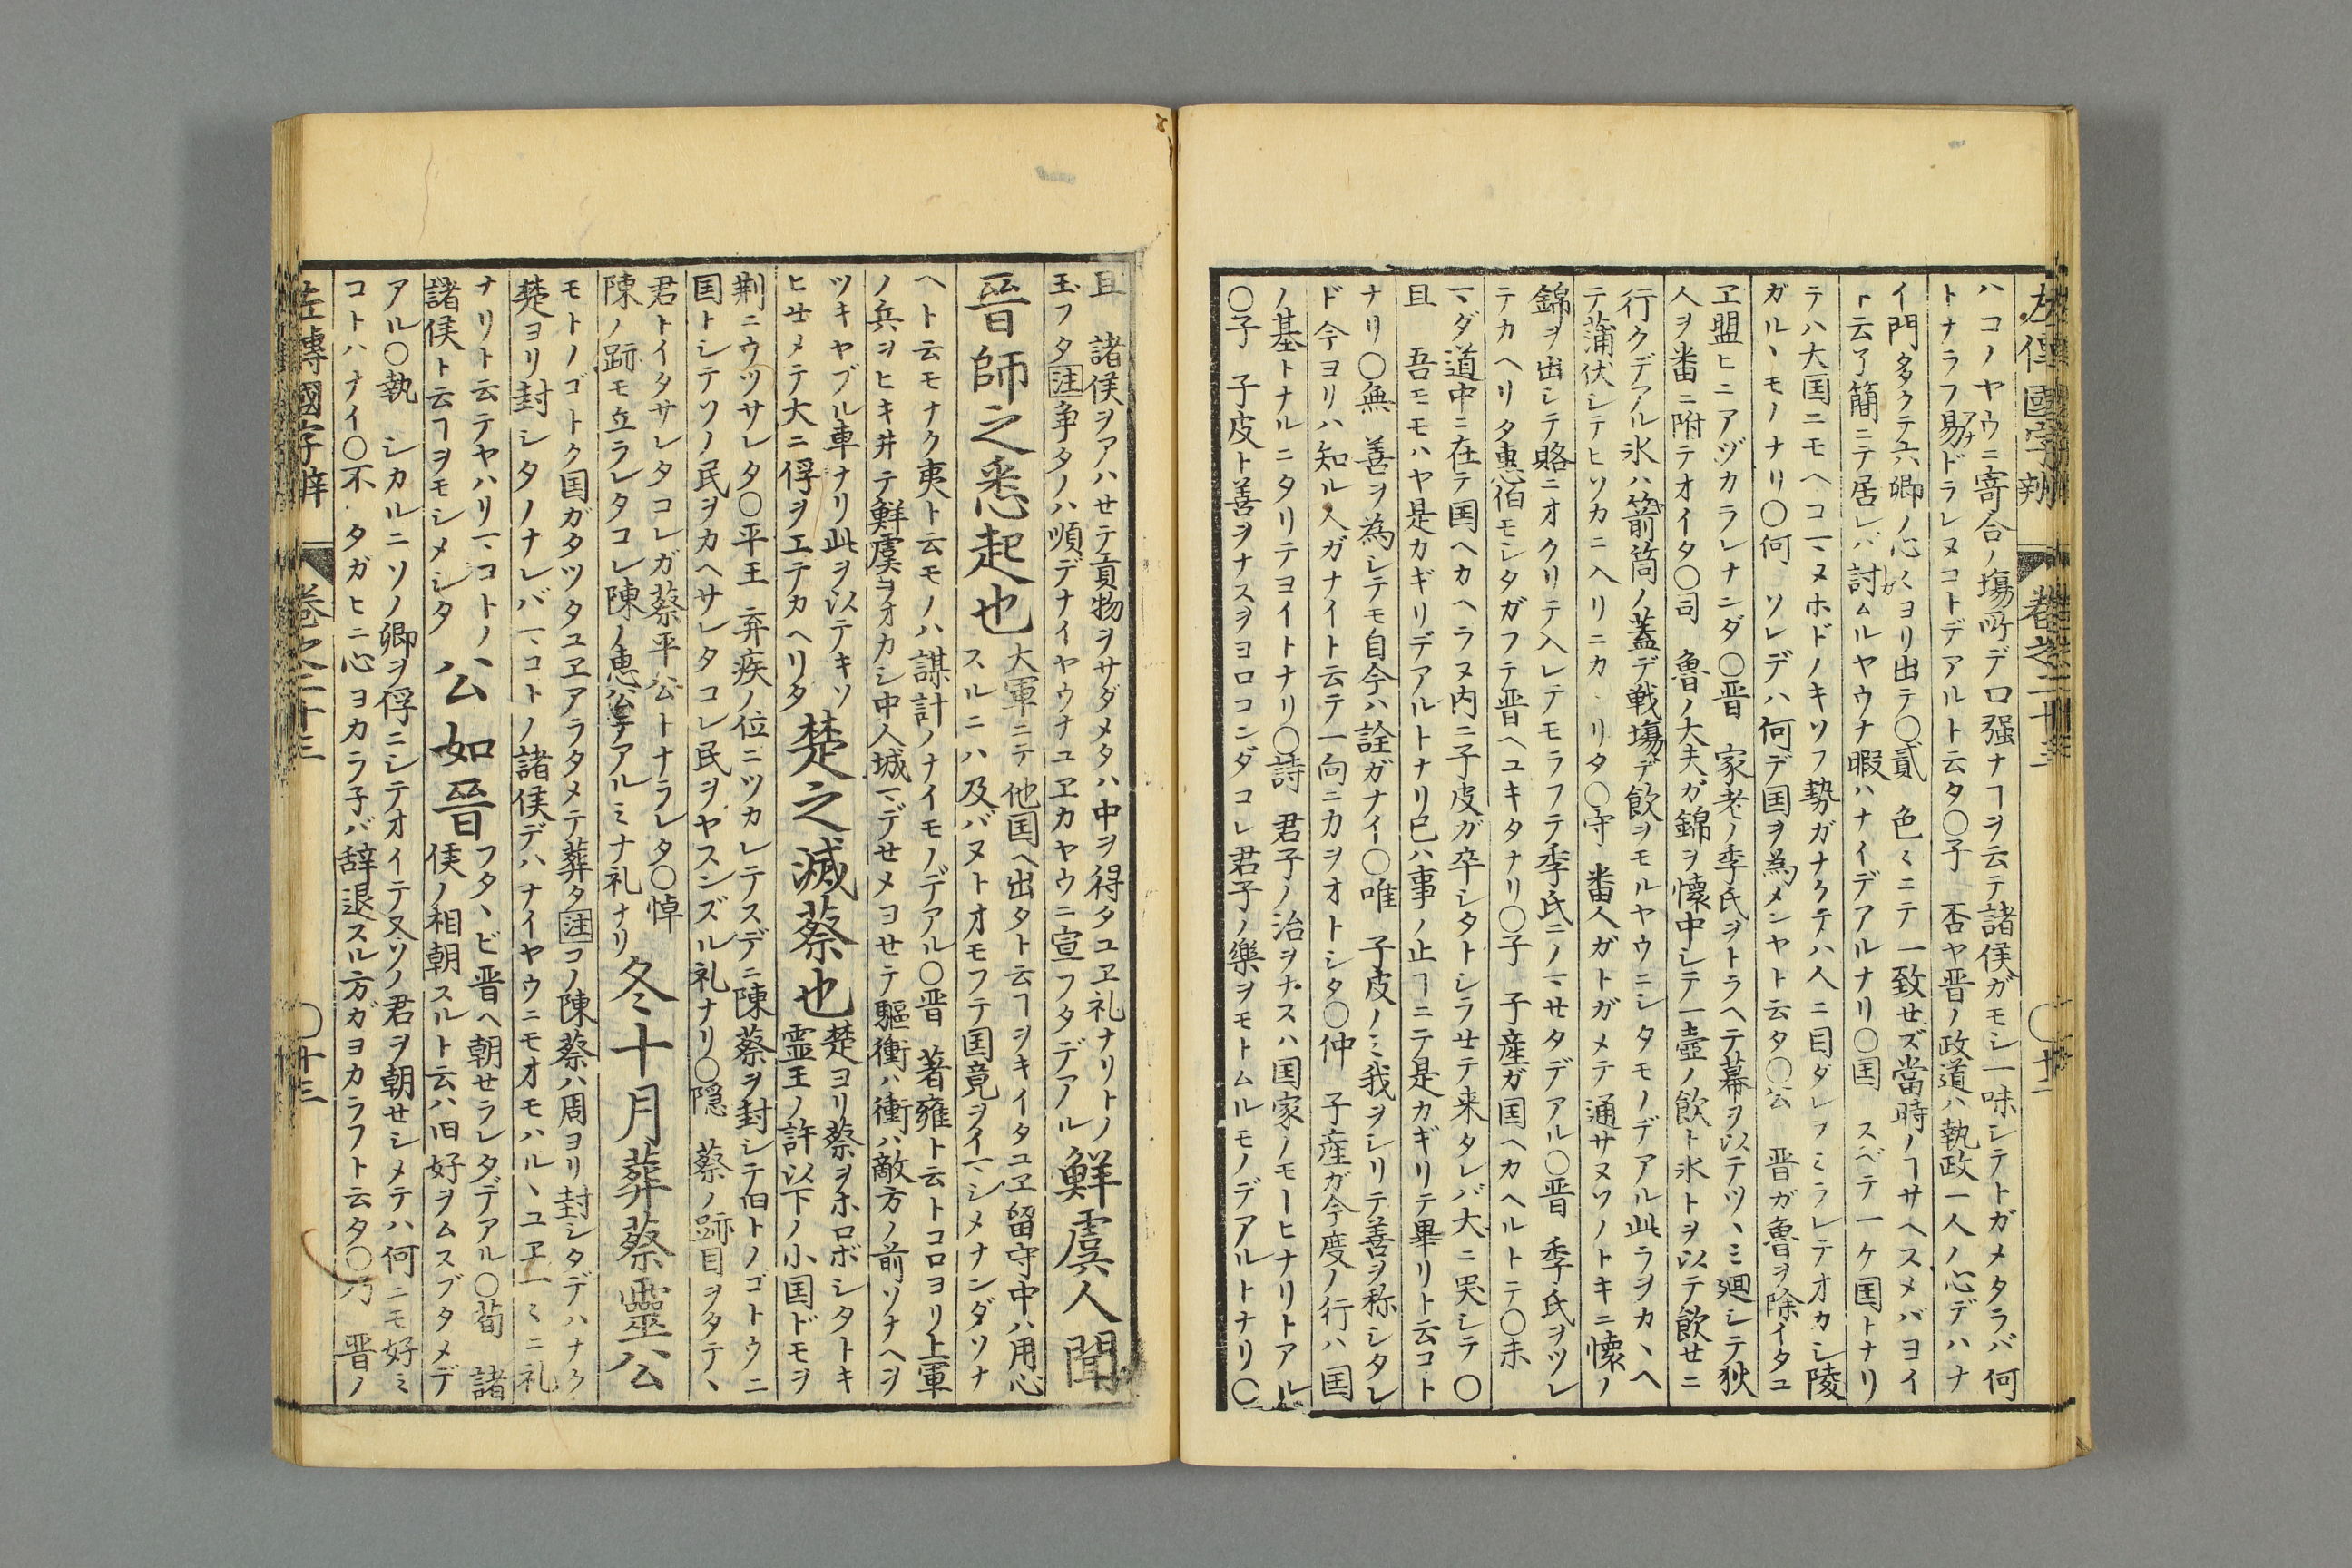 左傳國字辯 巻之二十三 〇十二
ハコノヤウニ寄合ノ塲所デ口强ナヿヲ云テ諸侯ガモシ一味シテトガメタラバ何
トナラフ易ドラレヌコトデアルト云タ〇子 否ヤ晋ノ政道ハ執政一人ノ心デハナ
イ門多クテ六卿ノ心〻ヨリ出テ〇貳 色〻ニテ一致セズ當時ノヿサヘスメバヨイ
ト云了簡ニテ居レバ討ムルヤウナ暇ハナイデアルナリ〇国 スベテ一ケ国トナリ
テハ大国ニモヘコマヌホドノキソフ勢ガナクテハ人ニ目ダレヲミラレテオカシ陵
ガルヽモノナリ〇何 ソレデハ何デ国ヲ為メンヤト云タ〇公 晋ガ魯ヲ除イタユ
ヱ盟ヒニアヅカラレナンダ〇晋 家老ノ季氏ヲトラヘテ幕ヲ以テツヽミ廻シテ狄
人ヲ番ニ附テオイタ〇司 魯ノ大夫ガ錦ヲ懷中シテ一壺ノ飲ト氷トヲ以テ飲セニ
行クデアル氷ハ箭筒ノ蓋デ戦塲デ飲ヲモルヤウニシタモノデアル此ラヲカヽヘ
テ蒲伏シテヒソカニ入リニカヽリタ〇守 番人ガトガメテ通サヌソノトキニ懷ノ
錦ヲ出シテ賂ニオクリテ入レテモラフテ季氏ニノマサタデアル〇晋 季氏ヲツレ
テカヘリタ惠伯モシタガフテ晋ヘユキタナリ〇子 子産ガ国ヘカヘルトテ〇未
マダ道中ニ在テ国ヘカヘラヌ内ニ子皮ガ卒シタトシラセテ来タレバ大ニ哭シテ〇
且 吾モモハヤ是カギリデアルトナリ已ハ事ノ止ヿニテ是カギリテ畢リト云コト
ナリ〇無 善ヲ為シテモ自今ハ詮ガナイ〇唯 子皮ノミ我ヲシリテ善ヲ称シタレ
ド今ヨリハ知ル人ガナイト云テ一向ニ力ヲオトシタ〇仲 子産ガ今度ノ行ハ国
ノ基トナルニタリテヨイトナリ〇詩 君子ノ治ヲナスハ国家ノモーヒナリトアル
〇子 子皮ト善ヲナスヲヨロコンダコレ君子ノ樂ヲモトムルモノデアルトナリ〇
且 諸侯ヲアハセテ貢物ヲサダメタハ中ヲ得タユヱ礼ナリトノ
玉フタ注争タノハ順デナイヤウナユヱカヤウニ宣フタデアル鮮虞人聞
晉師之悉起也大軍ニテ他国ヘ出タト云ヿヲキイタユヱ留守中ハ用心
スルニハ及バヌトオモフテ国竟ヲイマシメナンダソナ
ヘト云モナク夷ト云モノハ謀計ノナイモノデアル〇晋 著雍ト云トコロヨリ上軍
ノ兵ヲヒキ井テ鮮虞ヲオカシ中人城マデセメヨセテ驅衝ハ衝ハ敵方ノ前ソナヘヲ
ツキヤブル車ナリ此ヲ以テキソ
ヒせメテ大ニ俘ヲエテカヘリタ楚之滅蔡也楚ヨリ蔡ヲホロボシタトキ
霊王ノ許以下ノ小国ドモヲ
荆ニウツサレタ〇平王 弃疾ノ位ニツカレテスデニ陳蔡ヲ封シテ旧トノゴトウニ
国トシテソノ民ヲカヘサレタコレ民ヲヤスンズル礼ナリ〇隠 蔡ノ跡目ヲタテヽ
君トイタサレタコレガ蔡平公トナラレタ〇悼
陳ノ跡モ立ラレタコレ陳ノ恵公孚アルミナ礼ナリ冬十月葬蔡靈公
モトノゴトク国ガタツタユヱアラタメテ葬タ注コノ陳蔡ハ周ヨリ封シタデハナク
楚ヨリ封シタノナレバマコトノ諸侯デハナイヤウニモオモハルヽユヱ一〻ニ礼
ナリト云テヤハリマコトノ
諸侯ト云ヿヲモシメシタ公如晉フタヽビ晋ヘ朝セラレタデアル〇荀 諸
侯ノ相朝スルト云ハ旧好ヲムスブタメデ
アル〇執 シカルニソノ卿ヲ俘ニシテオイテ又ソノ君ヲ朝セシメテハ何ニモ好ミ
コトハナイ〇不 タガヒニ心ヨカラ子バ辞退スル方ガヨカラフト云タ〇乃 晋ノ
左傳國字辯 巻之二十三 〇十三